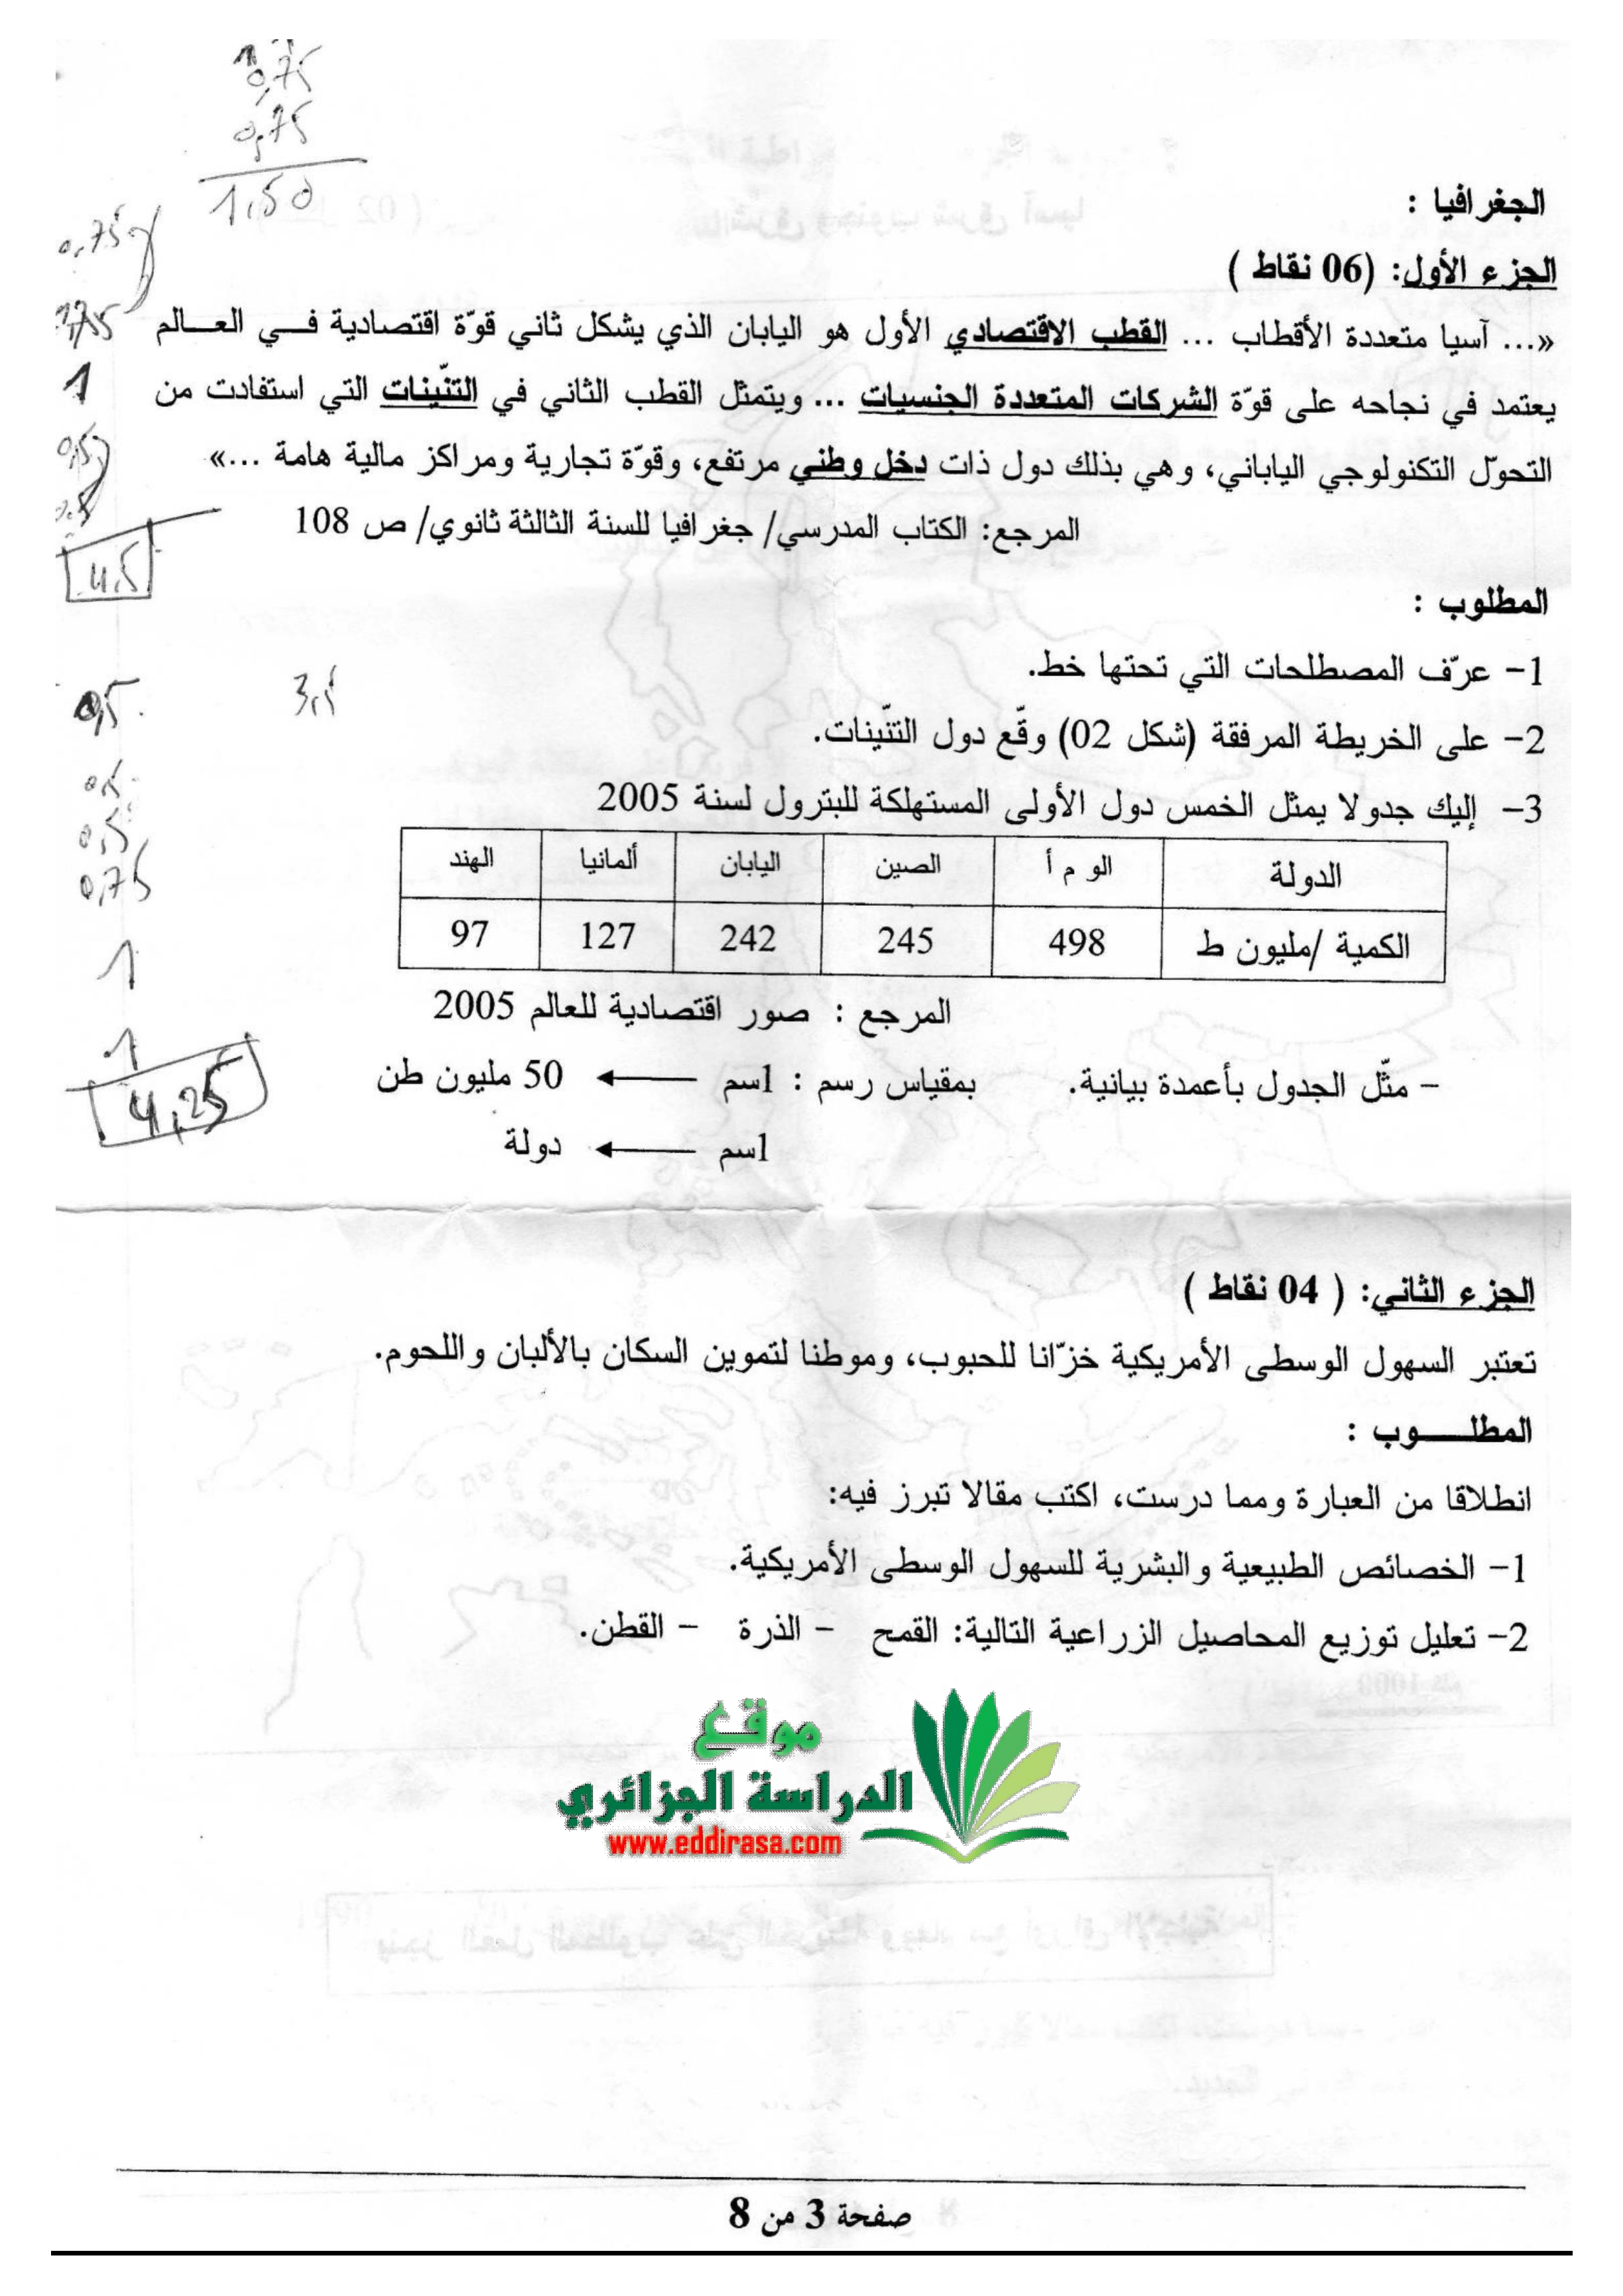 0,75
0,75
1,50
0,75
1,75
1
0,5
0,5
4,5
الجغرافيا :
الجزء الأول: (06 نقاط )
«... آسيا متعددة الأقطاب ... القطب الاقتصادي الأول هو اليابان الذي يشكل ثاني قوّة اقتصادية فــي العــالم
يعتمد في نجاحه على قوّة الشركات المتعددة الجنسيات ... ويتمثل القطب الثاني في التنّينات التي استفادت من
التحوّل التكنولوجي الياباني، وهي بذلك دول ذات دخل وطني مرتفع، وقوّة تجارية ومراكز مالية هامة ...»
المرجع: الكتاب المدرسي/ جغرافيا للسنة الثالثة ثانوي/ ص 108
المطلوب :
1- عرّف المصطلحات التي تحتها خط.
2- على الخريطة المرفقة (شكل 02) وقّع دول التنّينات.
3- إليك جدولا يمثل الخمس دول الأولى المستهلكة للبترول لسنة 2005
الدولة الو م أ الصين اليابان ألمانيا الهند
الكمية /مليون ط 498 245 242 127 97
المرجع : صور اقتصادية للعالم 2005
- مثّل الجدول بأعمدة بيانية. بمقياس رسم : 1سم ← 50 مليون طن
1سم ← دولة
0,5
0,5
0,75
1
1
4,25
الجزء الثاني: ( 04 نقاط )
تعتبر السهول الوسطى الأمريكية خزّانا للحبوب، وموطنا لتموين السكان بالألبان واللحوم.
المطلـــوب :
انطلاقا من العبارة ومما درست، اكتب مقالا تبرز فيه:
1- الخصائص الطبيعية والبشرية للسهول الوسطى الأمريكية.
2- تعليل توزيع المحاصيل الزراعية التالية: القمح - الذرة - القطن.
موقع
الدراسة الجزائري
www.eddirasa.com
صفحة 3 من 8